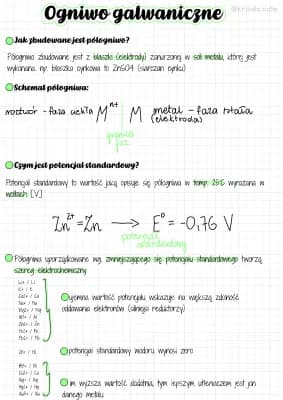 Ogniwo galwaniczne
Jak zbudowane jest półogniwo?
Półogniwo zbudowane jest z blaszki (elektrody) zanurzonej w soli metalu, której jest
wykonana. np. blaszka cynkowa to ZnSO4 (siarczan cynku)
Schemat półogniwa:
roztwór - faza ciekła Mⁿ⁺ | M metal - faza stała
(elektroda)
granica
faz
Czym jest potencjał standardowy?
Potencjał standardowy to wartość jaką opisuje się półogniwa w temp. 25°C wyrażana w
woltach [V]
Zn²⁺ = Zn → E° = -0,76 V
potencjał
standardowy
Półogniwa uporządkowane wg. zmniejszającego się potencjału standardowego tworzą
szereg elektrochemiczny
Li+ / Li
K+ / K
Ca2+ / Ca
Na+ / Na
Mg2+ / Mg
Al3+ / Al
Zn2+ / Zn
Fe2+ / Fe
Pb2+ / Pb
ujemna wartość potencjału wskazuje na większą zdolność
oddawania elektronów (silniejsi reduktorzy)
2H+ / H2
potencjał standardowy wodoru wynosi zero
Cu2+ / Cu
Ag+ / Ag
Hg2+ / Hg
Au3+ / Au
im wyższa wartość dodatnia, tym lepszym utleniaczem jest jon
danego metalu